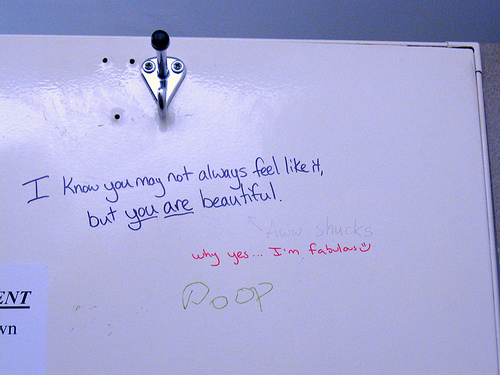 I know you may not always feel like it,
but you are beautiful.
Aww shucks
why yes... I'm fabulous
Poop
ENT
wn